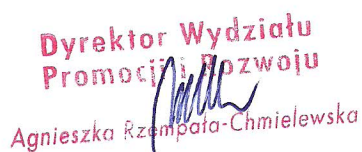 Dyrektor Wydziału
Promocji i Rozwoju
Agnieszka Rzempała-Chmielewska